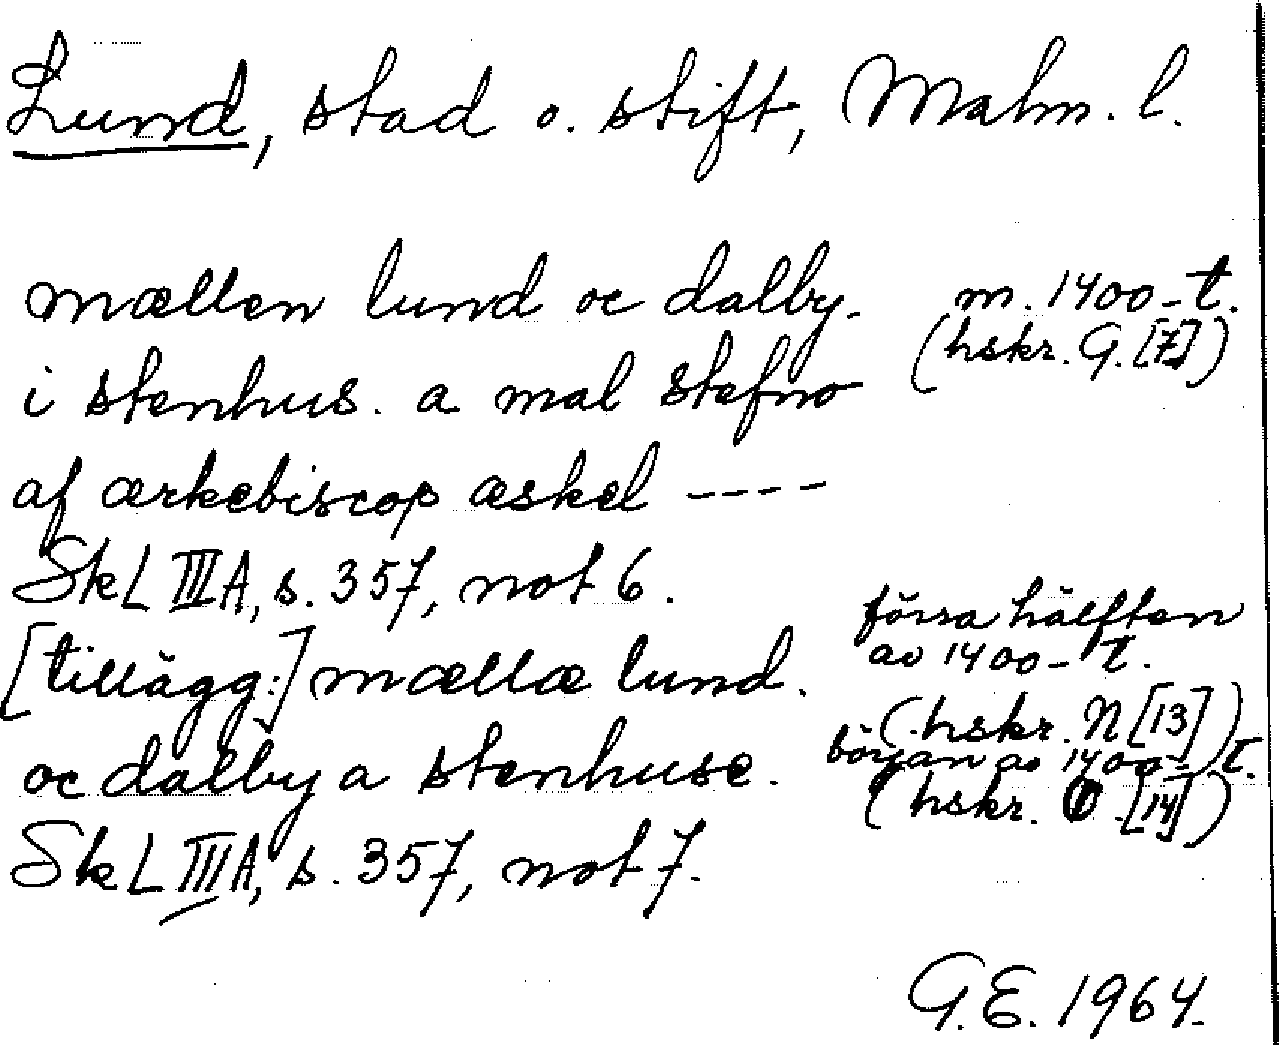 Lund, stad o. stift, Malm. l.
mællen lund oc dalby.
m. 1400-t.
(hskr. G. [7])
i stenhus. a mal stefno
af ærkebiscop æskel ----
SkL III A, s. 357, not 6.
[tillägg:] mællæ lund.
förra hälften
av 1400-t.
(hskr. N [13])
oc dalby a stenhuse.
början av 1400-t.
(hskr. O [14])
SkL III A, s. 357, not 7.
G.E. 1964.